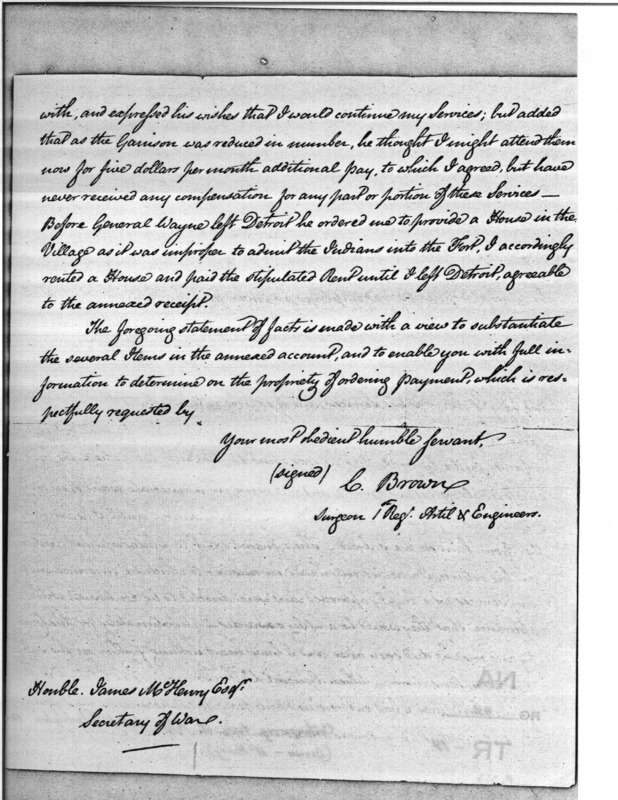 with, and expressed his wishes that I would continue my Services; but added
that as the Garrison was reduced in number, he thought I might attend them
now for five dollars per month additional pay, to which I agreed, but have
never received any compensation for any part or portion of these Services —
Before General Wayne left Detroit he ordered me to provide a House in the
Village as it was improper to admit the Indians into the Fort, I accordingly
rented a House and paid the stipulated Rent until I left Detroit, agreeable
to the annexed receipt.
The foregoing statement of facts is made with a view to substantiate
the several Items in the annexed account, and to enable you with full in-
formation to determine on the propriety of ordering payment, which is res-
pectfully requested by
Your most obedient humble Servant,
(signed) C. Brown
Surgeon 1st Regt. Artil & Engineers.
NA
RG
TR
Honble. James McHenry Esqr.
Secretary of War.